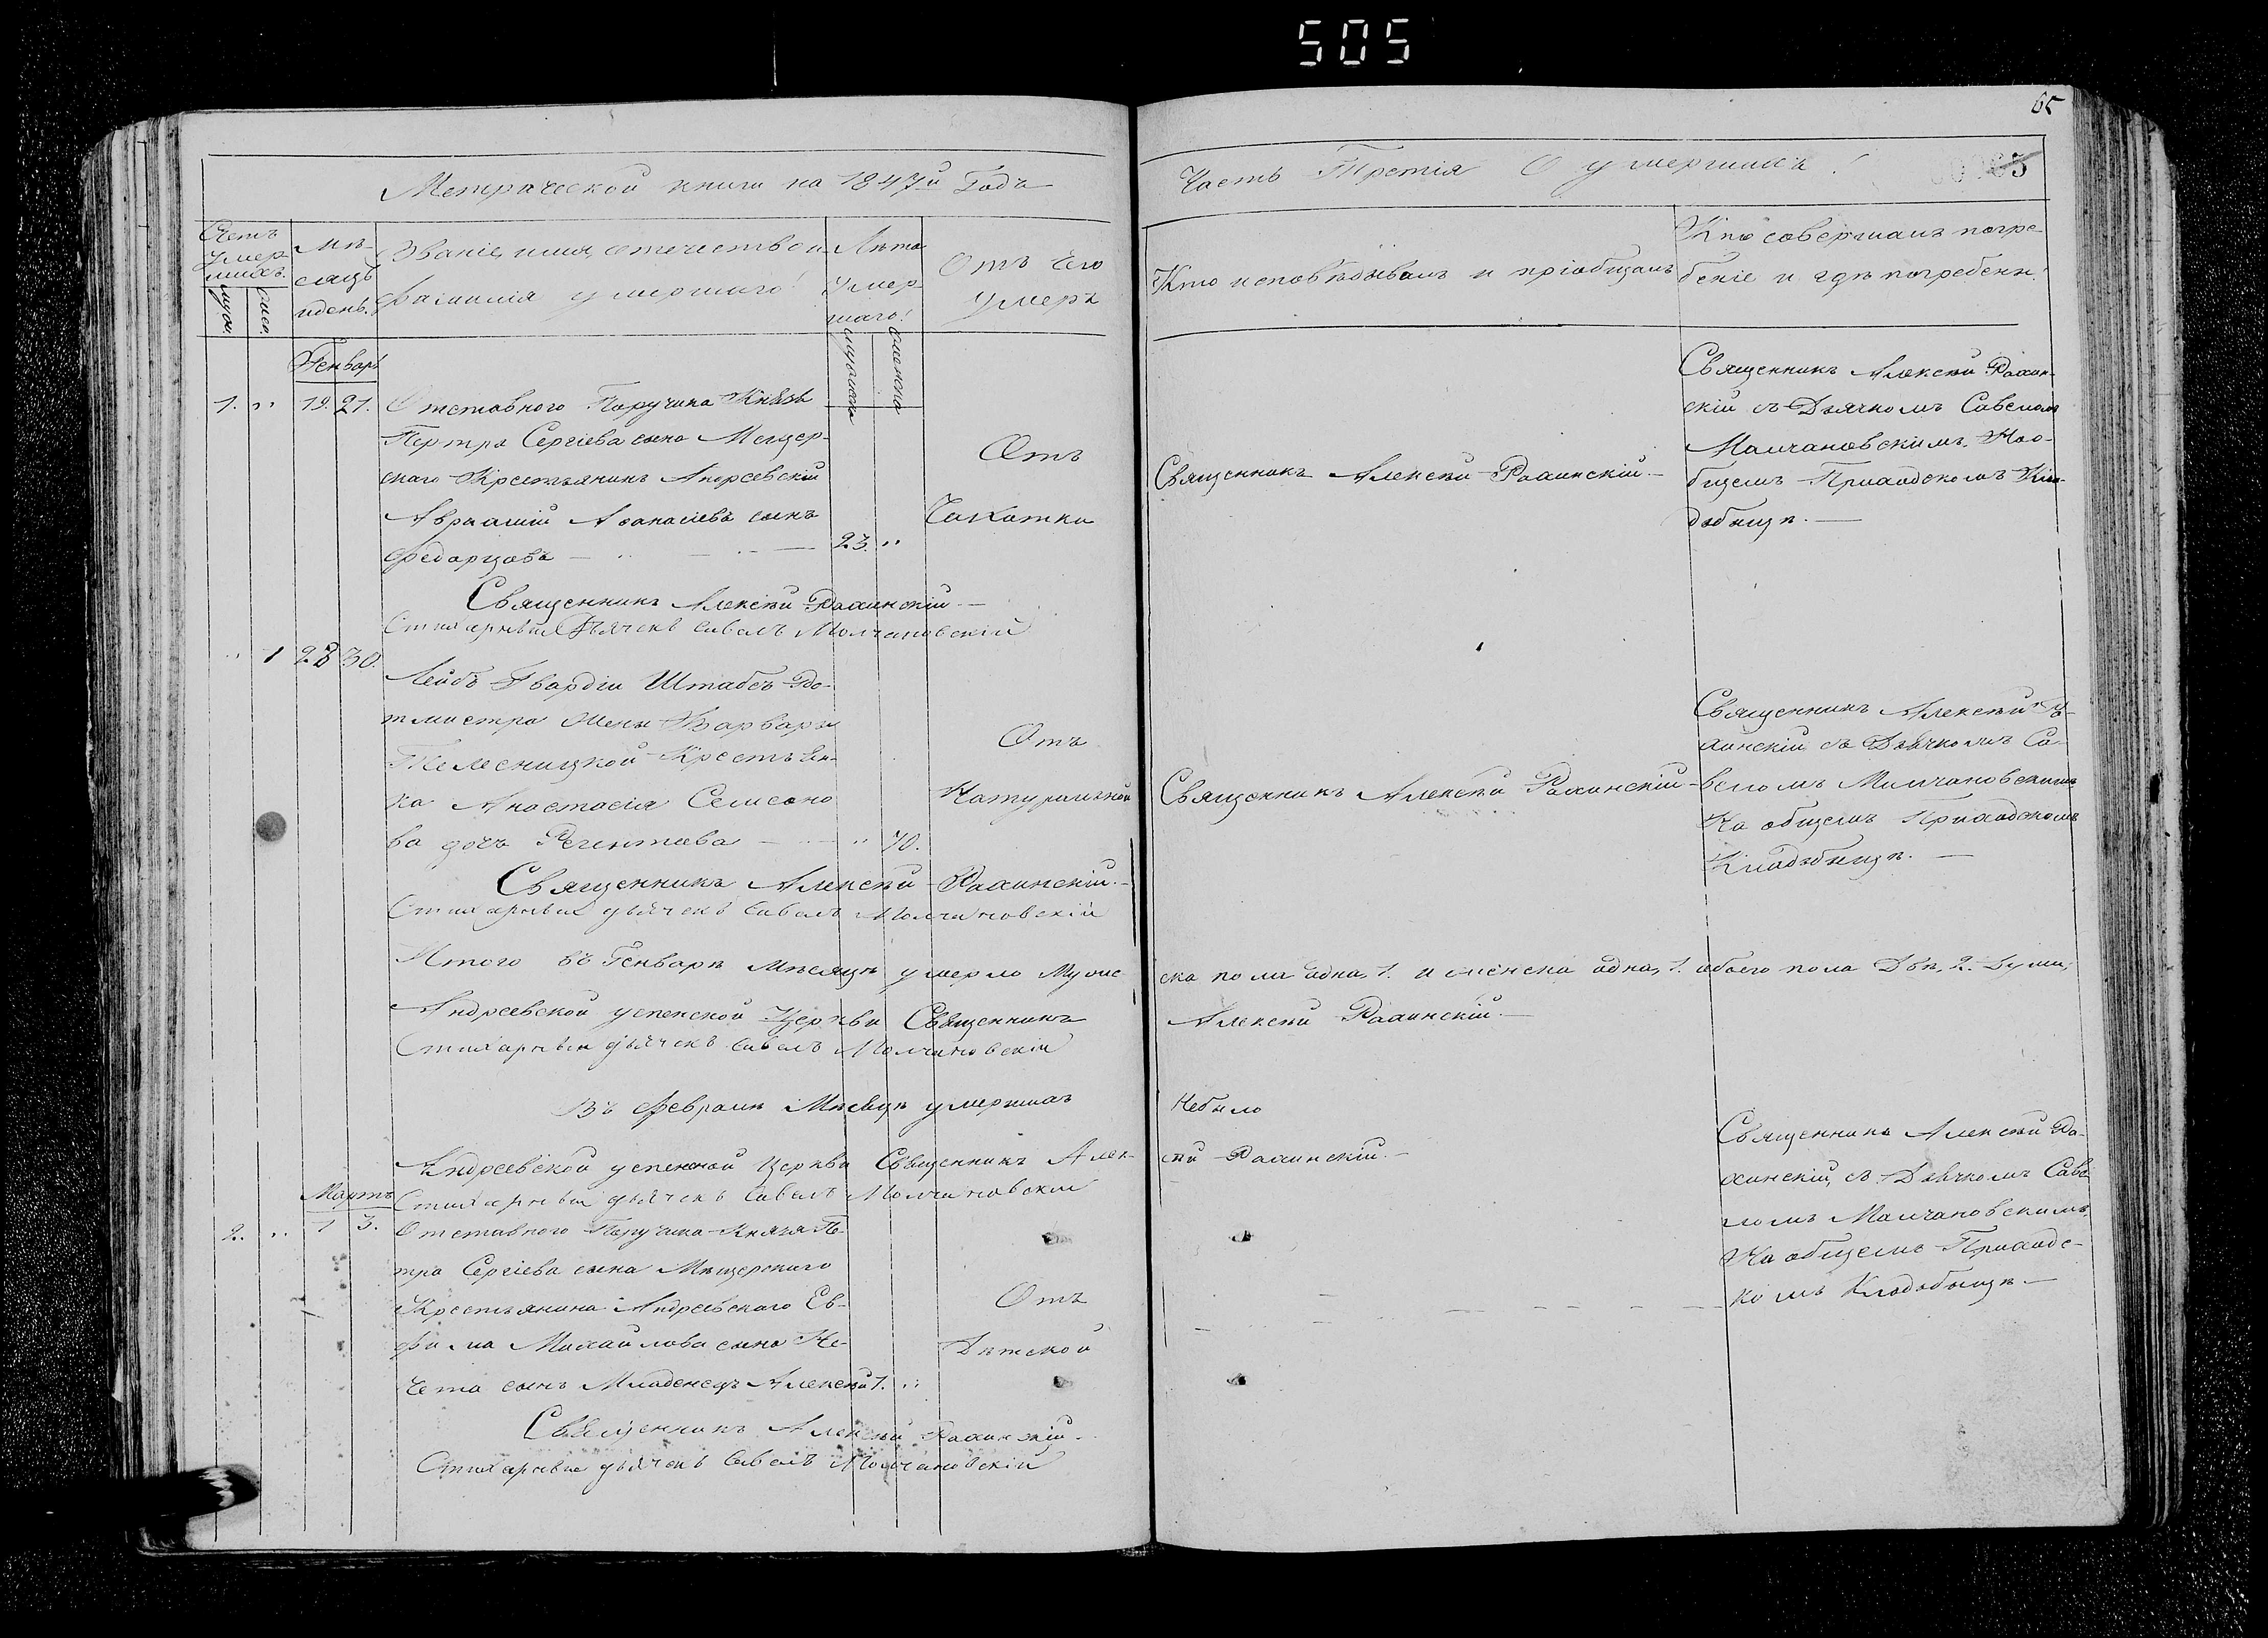 505
65
Метрической книги на 1847й Годъ
Часть Третія О умершихъ!
Счетъ
умер
шихъ.
муж.
женс.
Мѣ-
сяцъ
и день.
Званіе, имя, отечество и
фамилія умершаго!
Лѣта
умер
шаго!
мужеска
женска
Отъ чего
умеръ
Кто исповѣдывалъ и пріобщалъ
Кто совершалъ погре-
беніе и гдѣ погребены!
Генварь
1. " 19. 21. Отставного Поручика Князя
Петра Сергіева сына Мещер-
скаго Крестьянинъ Андреевскій
Авраамій Аѳанасіевъ сынъ
Федорцовъ — 23. "
Отъ
Чахотки
Священникъ Алексѣй Рахинскій. —
Священникъ Алексѣй Рахин-
скій съ Дьячкомъ Савеломъ
Малчановскимъ. На о-
бщемъ Приходскомъ Кла-
дбищѣ. —
Священникъ Алексѣй Рахинскій. —
Стихарный Дьячекъ Савелъ Молчановскій
" 1 28 30.
Лейбъ Гвардіи Штабсъ-Ро-
тмистра жены Варвары
Телесницкой Крестьян-
ка Анастасія Семіоно
ва дочь Регентова — " 70.
Отъ
Натуральной
Священникъ Алексѣй Рахинскій —
Священникъ Алексѣй Ра-
хинскій съ Дьячкомъ Са-
веломъ Малчановскимъ
На общемъ Приходскомъ
Кладбищѣ. —
Священникъ Алексѣй Рахинскій. —
Стихарный дьячекъ Савелъ Молчановскій
Итого въ Генварѣ Мѣсяцѣ умерло Муже
ска пола одна, 1. и женска одна, 1. обоего пола Двѣ, 2. Души,
Андреевской успенской Церкви Священникъ
Алексѣй Рахинскій. —
Стихарный дьячекъ Савелъ Молчановскій
Въ Февралѣ Мѣсяцѣ умершихъ
Небыло
Андреевской успенской Церкви Священникъ Алек-
сѣй Рахинскій. —
Стихарный дьячекъ Савелъ Молчановскій
Мартъ
2. " 1 3. Отставного Поручика Князя Пе-
тра Сергіева сына Мещерскаго
Крестьянина Андреевскаго Ев-
фима Михайлова сына Не-
чета сынъ Младенецъ Алексѣй 1. "
Отъ
Дѣтской
Священникъ Алексѣй Ра-
хинскій, съ Дьячкомъ Саве
ломъ Малчановскимъ.
На общемъ Приходс-
комъ Кладбищѣ —
Священникъ Алексѣй Рахинскій.
Стихарный дьячекъ Савелъ Молчановскій